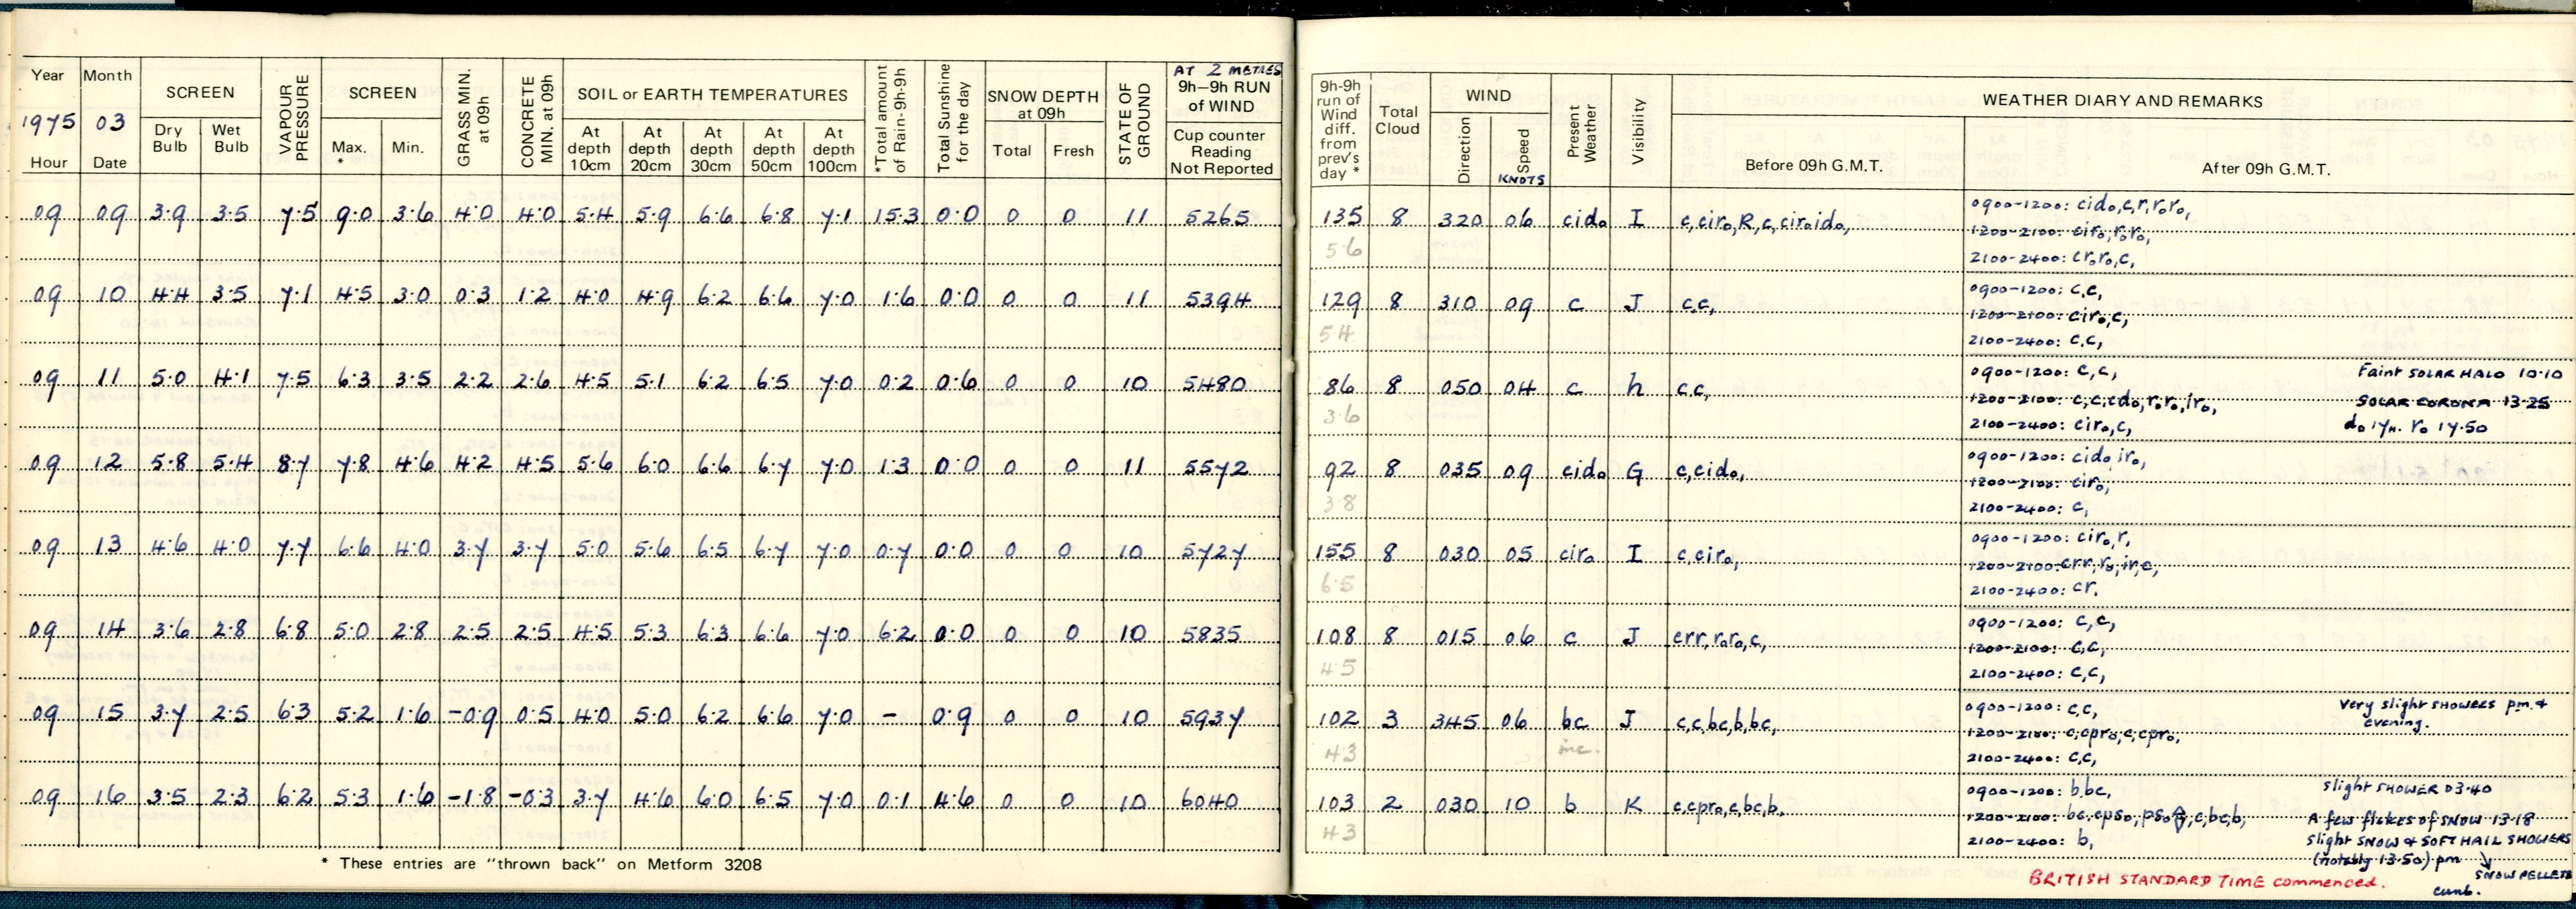 Year Month SCREEN VAPOUR PRESSURE SCREEN GRASS MIN. at 09h CONCRETE MIN. at 09h SOIL or EARTH TEMPERATURES *Total amount of Rain-9h-9h Total Sunshine for the day SNOW DEPTH at 09h STATE OF GROUND AT 2 METRES 9h–9h RUN of WIND
1975 03 Dry Bulb Wet Bulb Max. * Min. At depth 10cm At depth 20cm At depth 30cm At depth 50cm At depth 100cm Total Fresh Cup counter Reading Not Reported
Hour Date
09 09 3.9 3.5 7.5 9.0 3.6 4.0 4.0 5.4 5.9 6.6 6.8 7.1 15.3 0.0 0 0 11 5265
09 10 4.4 3.5 7.1 4.5 3.0 0.3 1.2 4.0 4.9 6.2 6.6 7.0 1.6 0.0 0 0 11 5394
09 11 5.0 4.1 7.5 6.3 3.5 2.2 2.6 4.5 5.1 6.2 6.5 7.0 0.2 0.6 0 0 10 5480
09 12 5.8 5.4 8.7 7.8 4.6 4.2 4.5 5.6 6.0 6.6 6.7 7.0 1.3 0.0 0 0 11 5572
09 13 4.6 4.0 7.7 6.6 4.0 3.7 3.7 5.0 5.6 6.5 6.7 7.0 0.7 0.0 0 0 10 5727
09 14 3.6 2.8 6.8 5.0 2.8 2.5 2.5 4.5 5.3 6.3 6.6 7.0 6.2 0.0 0 0 10 5835
09 15 3.7 2.5 6.3 5.2 1.6 -0.9 0.5 4.0 5.0 6.2 6.6 7.0 - 0.9 0 0 10 5937
09 16 3.5 2.3 6.2 5.3 1.6 -1.8 -0.3 3.7 4.6 6.0 6.5 7.0 0.1 4.6 0 0 10 6040
* These entries are "thrown back" on Metform 3208
9h-9h run of Wind diff. from prev's day * Total Cloud WIND Present Weather Visibility WEATHER DIARY AND REMARKS
Direction Speed KNOTS Before 09h G.M.T. After 09h G.M.T.
135 8 320 06 cido I c,ciro,R,c,ciroido, 0900-1200: cido,c,r,roro,
5.6 1200-2100: ciro,roro,
2100-2400: croro,c,
129 8 310 09 c J c,c, 0900-1200: c,c,
5.4 1200-2100: ciro,c,
2100-2400: c,c,
86 8 050 04 c h c,c, 0900-1200: c,c, Faint SOLAR HALO 10.10
3.6 1200-2100: c,c,cdo,roro,iro, SOLAR CORONA 13.25
2100-2400: ciro,c, do 17h. ro 17.50
92 8 035 09 cido G c,cido, 0900-1200: cido,iro,
3.8 1200-2100: ciro,
2100-2400: c,
155 8 030 05 ciro I c,ciro, 0900-1200: ciro,r,
6.5 1200-2100: crr,ro,ir,c,
2100-2400: cr.
108 8 015 06 c J crr,roro,c, 0900-1200: c,c,
4.5 1200-2100: c,c,
2100-2400: c,c,
102 3 345 06 bc J c,c,bc,b,bc, 0900-1200: c,c, Very slight SHOWERS pm. & evening.
4.3 inc. 1200-2100: c,cpro,c,cpro,
2100-2400: c,c,
103 2 030 10 b K c,cpro,c,bc,b, 0900-1200: b,bc, slight SHOWER 03.40
4.3 1200-2100: bc,cpso,pso,c,bc,b, A few flakes of SNOW 13.18
2100-2400: b, slight SNOW & SOFT HAIL SHOWERS
(notably 13.50) pm
SNOW PELLETS
BRITISH STANDARD TIME commenced. cunb.